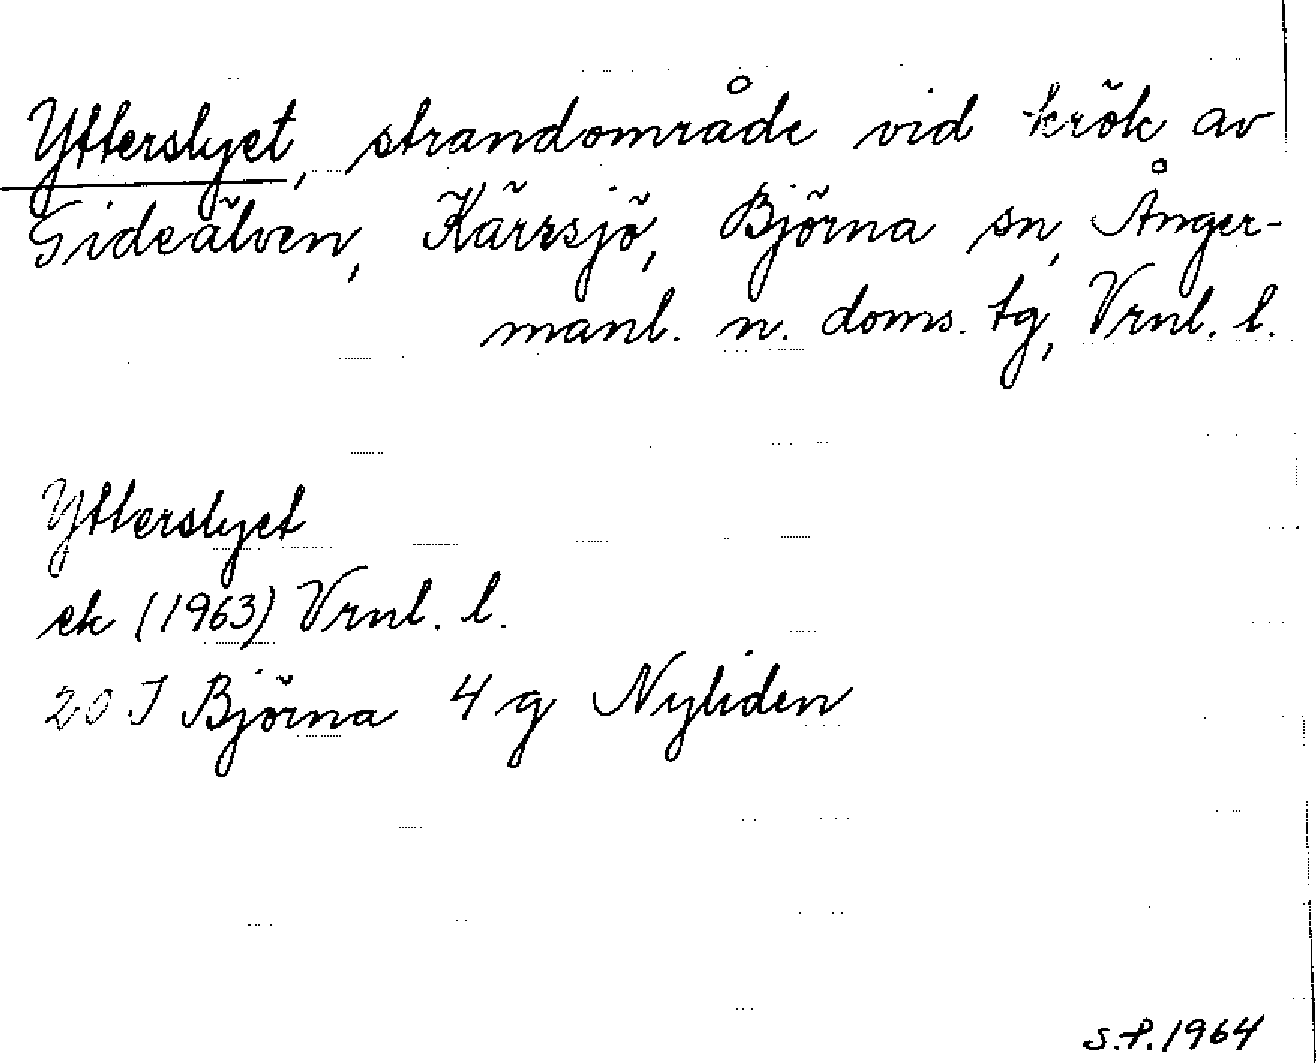 Ytterslyet, strandområde vid krök av
Gideälven, Kärrsjö, Björna sn, Ånger-
manl. n. doms. tg, Vrnl. l.
Ytterslyet
ek (1963) Vrnl. l.
20 I Björna 4 g Nyliden
S.P. 1964